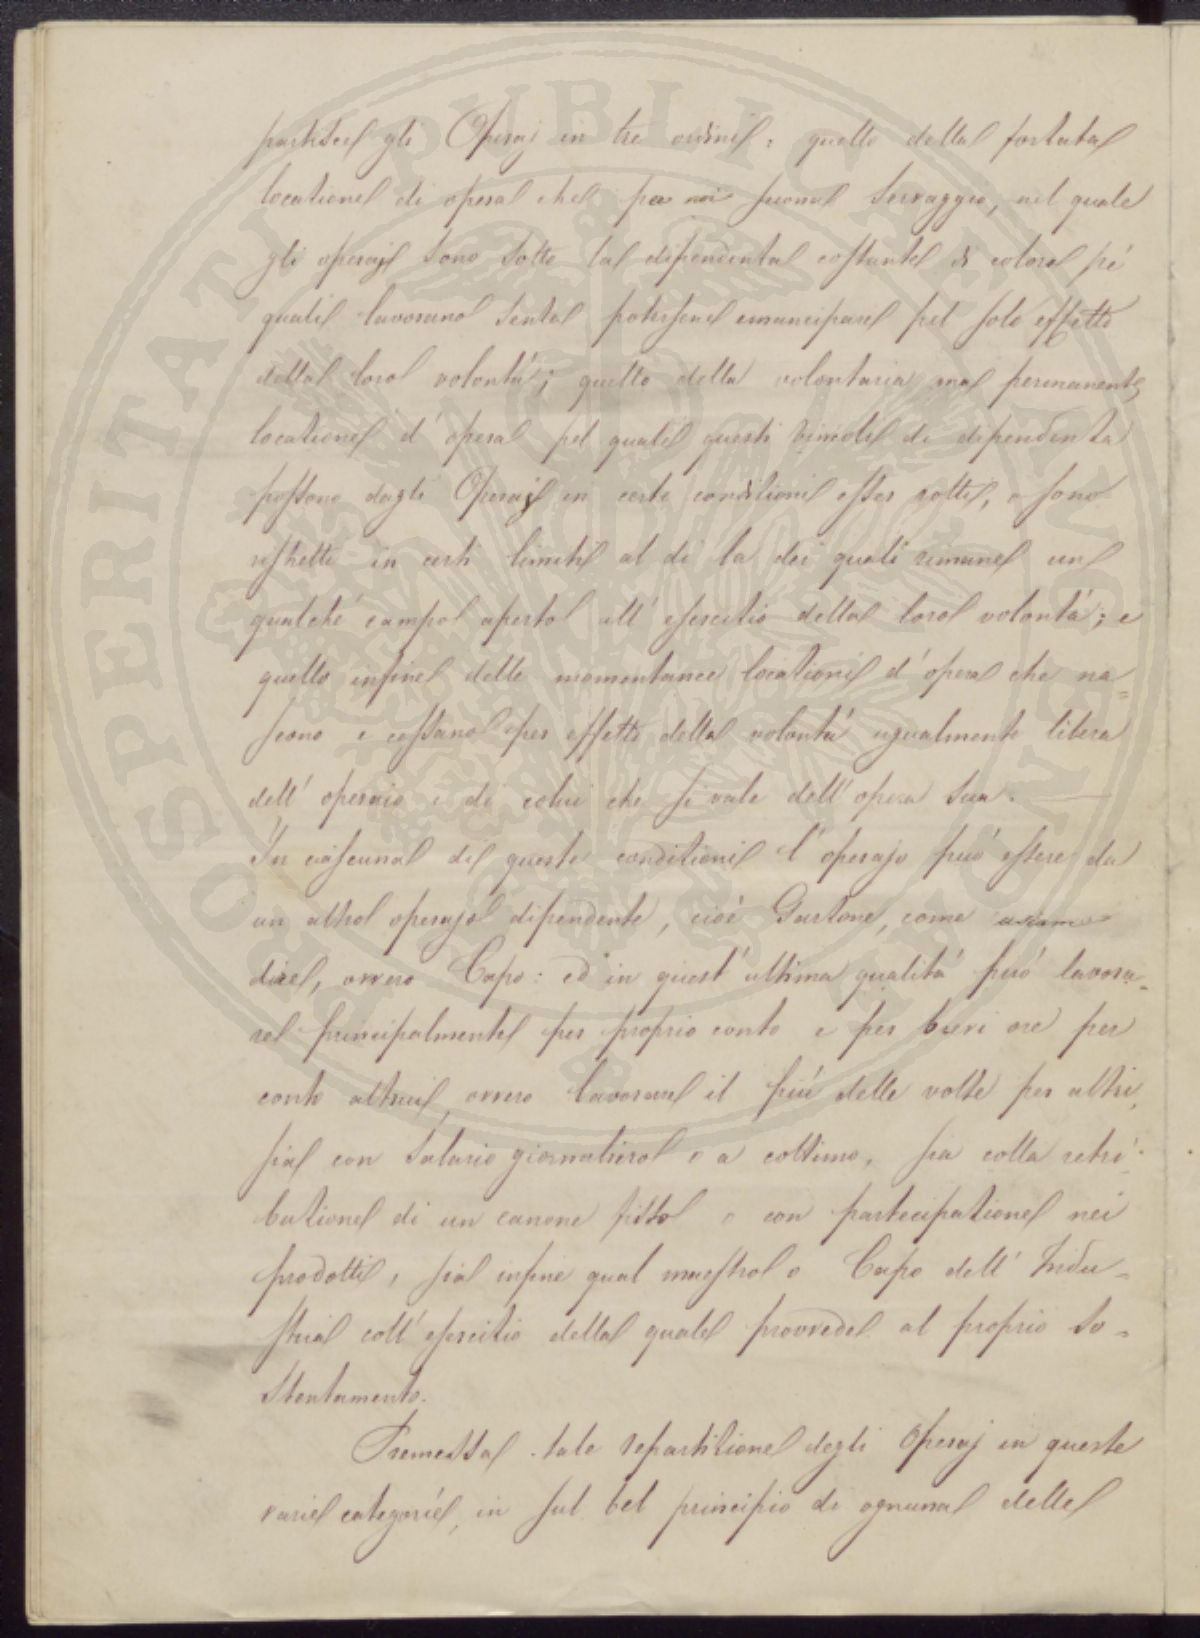 partisce gli Operaj in tre ordini: quello della forzata
locazione di opera che per noi suona Servaggio, nel quale
gli operaj sono sotto la dipendenza costante di coloro pé
quali lavorano senza potersene emancipare pel solo effetto
della loro volontá; quello della volontaria ma permanente
locazione d'opera pel quale questi vincoli di dipendenza
possono dagli Operaj in certe condizioni esser rotti, o sono
ristretti in certi limiti al di la dei quali rimane un
qualche campo aperto all'esercizio della loro volontá; e
quello infine delle momentanee locazioni d'opera che na=
scono e cessano per effetto della volontá ugualmente libera
dell'operaio e di colui che si vale dell'opera sua.
In ciascuna di queste condizioni l'operajo puó essere da
un altro operajo dipendente, cioé Garzone, come usiamo
dire, ovvero Capo: ed in quest'ultima qualitá puó lavora=
re principalmente per proprio conto e per brevi ore per
conto altrui, ovvero lavorare il piú delle volte per altri,
sia con Salario giornaliero o a cottimo, sia colla retri=
buzione di un canone fisso o con partecipazione nei
prodotti, sia infine qual maestro o Capo dell'Indu=
stria coll'esercizio della quale provvede al proprio so=
stentamento.
Premessa tale repartizione degli Operaj in queste
varie categoríe, in sul bel principio di ognuna delle
PROSPERITATI PUBLICAE